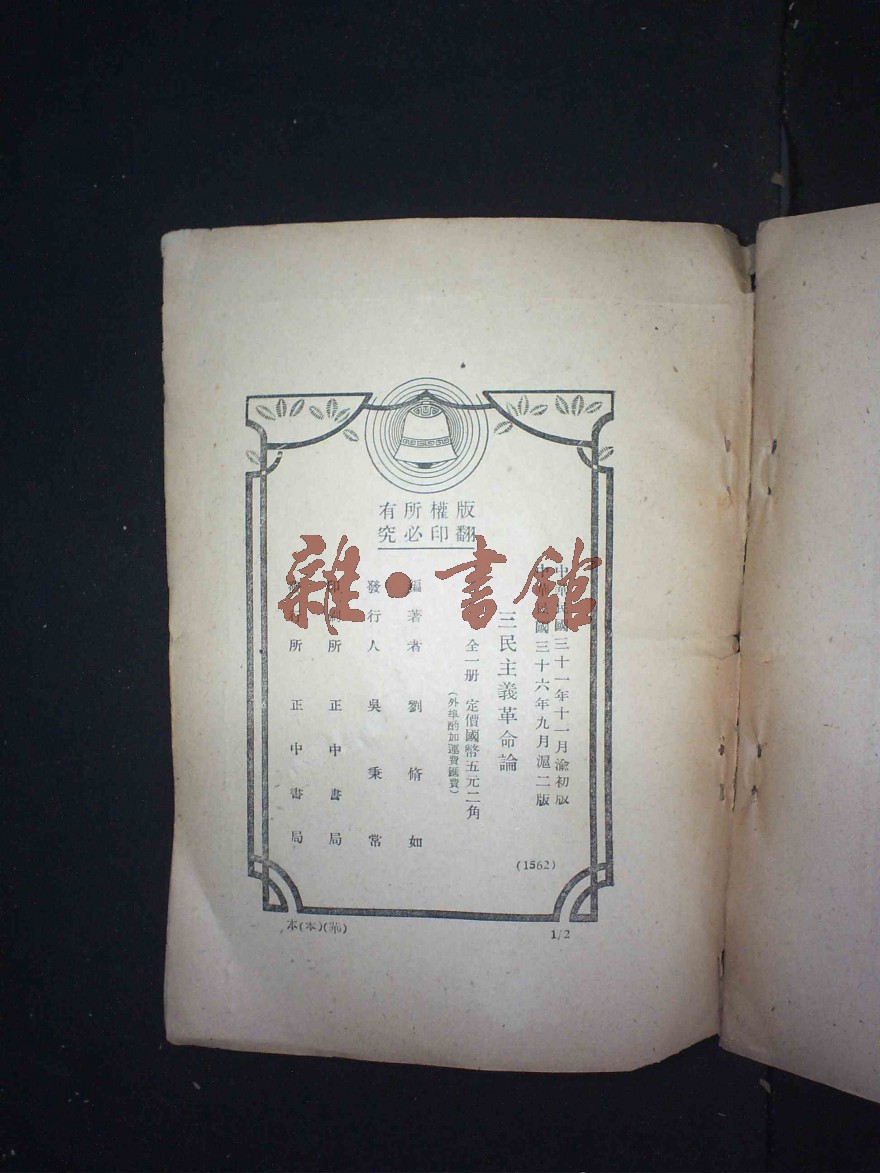 版權所有
翻印必究
中華民國三十一年十一月渝初版
中華民國三十六年九月滬二版
三民主義革命論
全一册 定價國幣五元二角
(外埠酌加運費匯費)
編著者 劉脩如
發行人 吳秉常
印刷所 正中書局
發行所 正中書局
(1562)
1/2
雜·書館